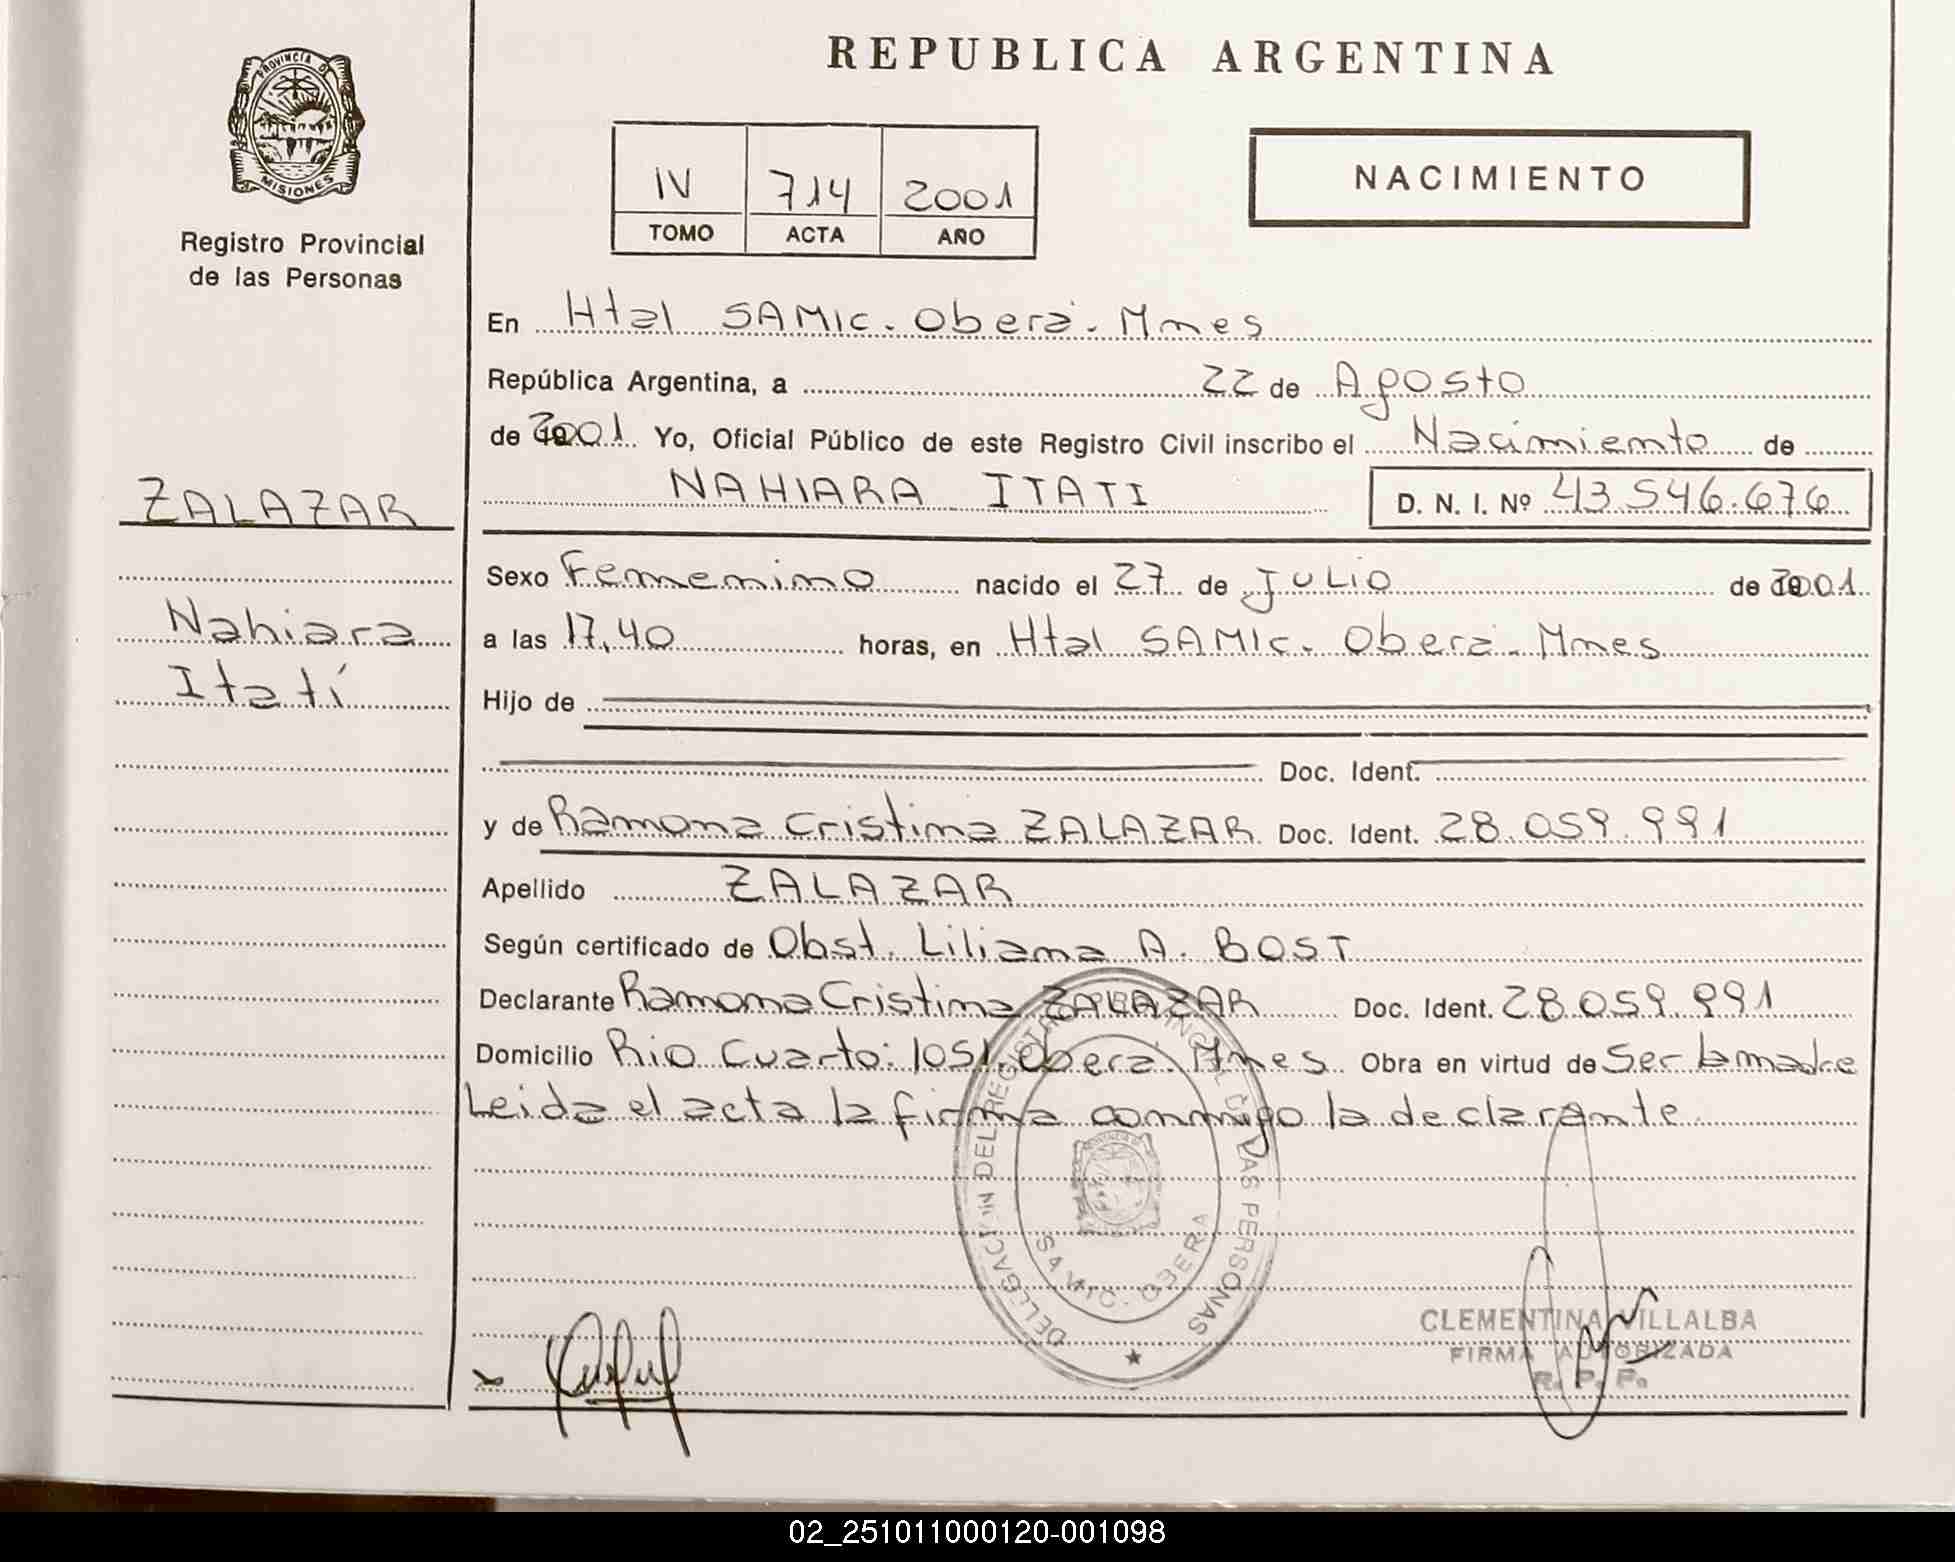 REPUBLICA ARGENTINA
PROVINCIA DE
MISIONES
Registro Provincial
de las Personas
IV 714 2001
TOMO ACTA AÑO
NACIMIENTO
En Htal SAMIC. Oberá. Mnes
República Argentina, a 22 de Agosto
de 2001 Yo, Oficial Público de este Registro Civil inscribo el Nacimiento de
NAHIARA ITATI D. N. I. Nº 43.546.676
ZALAZAR
Nahiara
Itatí
Sexo Femenino nacido el 27 de JULIO de 2001
a las 17,40 horas, en Htal SAMIC. Oberá. Mnes
Hijo de
Doc. Ident.
y de Ramona Cristina ZALAZAR Doc. Ident. 28.059.991
Apellido ZALAZAR
Según certificado de Obst. Liliana A. BOST
Declarante Ramona Cristina ZALAZAR Doc. Ident. 28.059.991
Domicilio Rio Cuarto: 1051. Oberá. Mnes Obra en virtud de Ser la madre
Leida el acta la firma conmigo la declarante
DELEGACION DEL REGISTRO PROVINCIAL DE LAS PERSONAS
SAMIC - OBERA
CLEMENTINA VILLALBA
FIRMA AUTORIZADA
R. P. P.
02_251011000120-001098